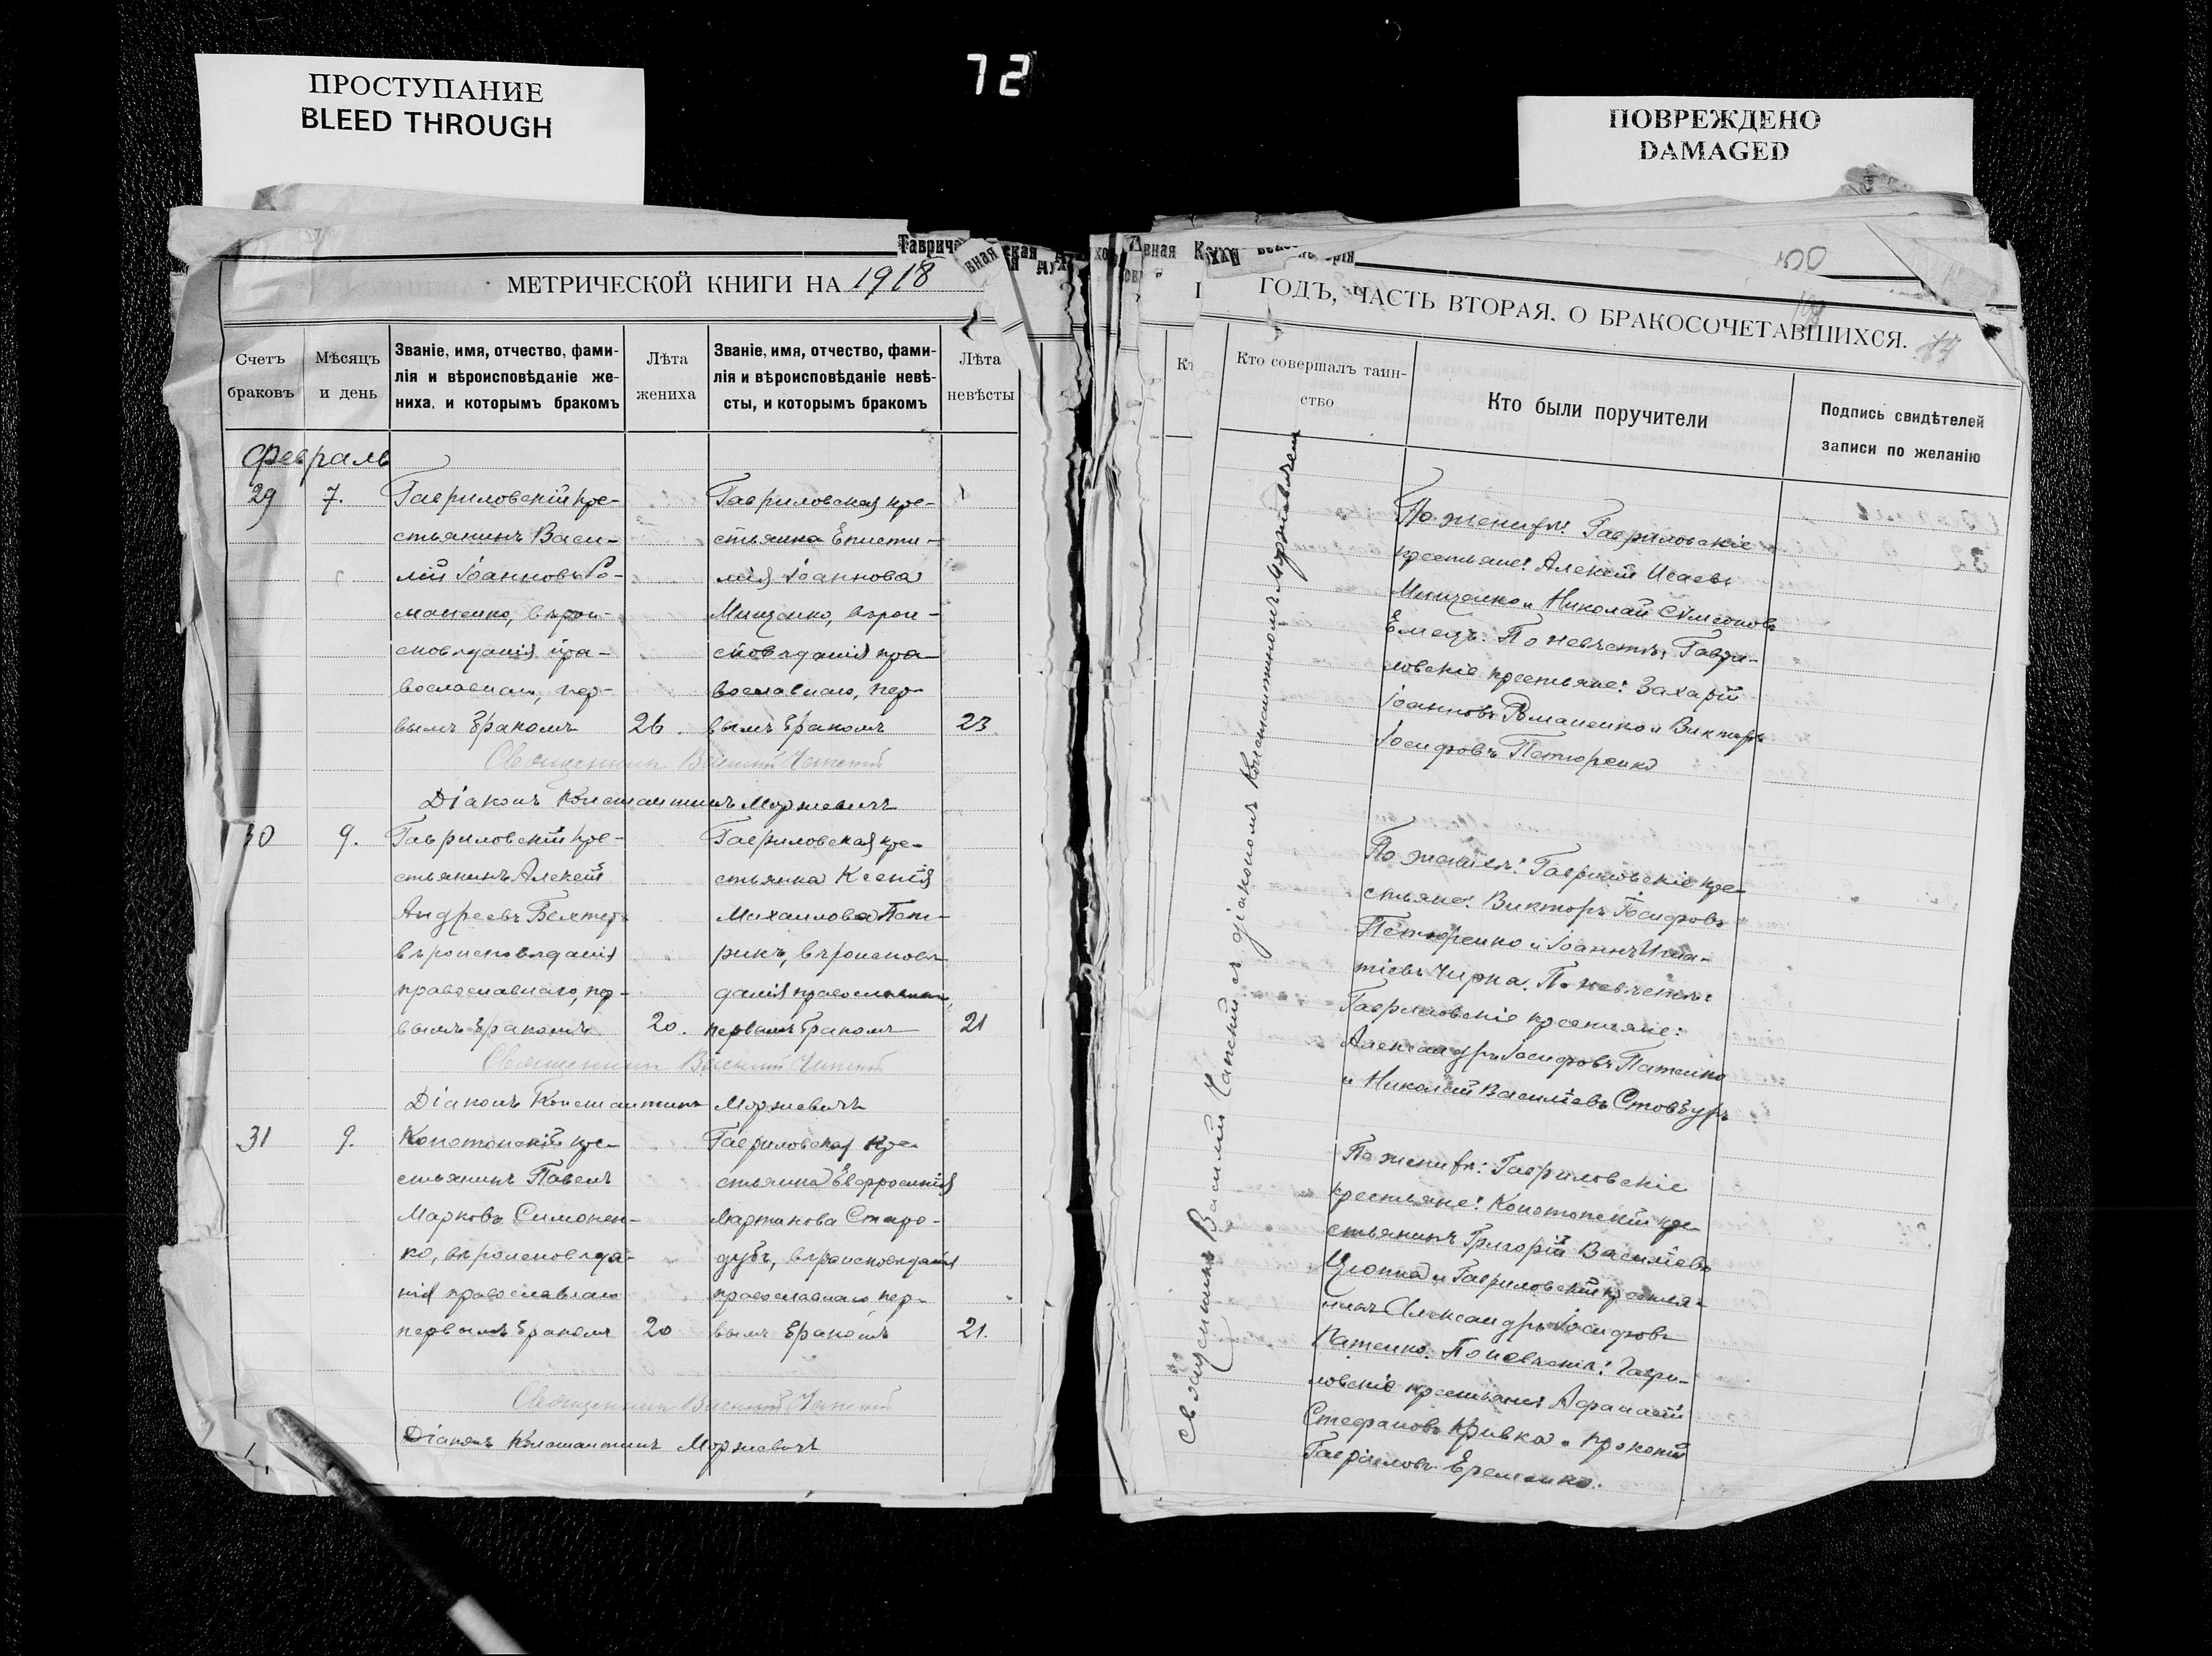 72
ПРОСТУПАНИЕ
BLEED THROUGH
ПОВРЕЖДЕНО
DAMAGED
МЕТРИЧЕСКОЙ КНИГИ НА 1918
Счетъ браковъ
Мѣсяцъ и день
Званіе, имя, отчество, фами-
лія и вѣроисповѣданіе же-
ниха, и которымъ бракомъ
Лѣта жениха
Званіе, имя, отчество, фами-
лія и вѣроисповѣданіе невѣ-
сты, и которымъ бракомъ
Лѣта невѣсты
Февраль
29 7.
Гавриловскій кре-
стьянинъ Васи-
лій Іоанновъ Ро-
маненко, вѣрои-
сповѣданія пра-
вославнаго, пер-
вымъ бракомъ
26.
Гавриловская кре-
стьянка Еписти-
мія Іоаннова
Мищенко, вѣрои-
сповѣданія пра-
вославнаго, пер-
вымъ бракомъ
23.
Священникъ Василій
Діаконъ Константинъ Моржевичъ
30 9.
Гавриловскій кре-
стьянинъ Алексій
Андреевъ
вѣроисповѣданія
православнаго, пер-
вымъ бракомъ
20.
Гавриловская кре-
стьянка Ксенія
Михаилова Пет-
рикъ, вѣроисповѣ-
данія православнаго,
первымъ бракомъ
21
Священникъ Василій
Діаконъ Константинъ Моржевичъ
31 9.
Конотопскій кре-
стьянинъ Павелъ
Марковъ Симонен-
ко, вѣроисповѣда-
нія православнаго
первымъ бракомъ
20
Гавриловская кре-
стьянка Евфросинія
Мартинова Старо-
дубъ, вѣроисповѣданія
православнаго, пер-
вымъ бракомъ
21.
Священникъ Василій
Діаконъ Константинъ Моржевичъ
100
ГОДЪ, ЧАСТЬ ВТОРАЯ, О БРАКОСОЧЕТАВШИХСЯ.
Кто совершалъ таин-
ство
Кто были поручители
Подпись свидѣтелей
записи по желанію
Священникъ Василій съ діакономъ Константиномъ Моржевичемъ
По женихѣ: Гавриловскіе
крестьяне: Алексій Исаевъ
Мищенко и Николай Сѵмеоновъ
Емецъ. По невѣстѣ: Гаври-
ловскіе крестьяне: Захарій
Іоанновъ Романенко и Викторъ
Іосифовъ Петюренко
По женихѣ: Гавриловскіе кре-
стьяне: Викторъ Іосифовъ
Петюренко и Іоаннъ Игна-
тіевъ Чирка. По невѣстѣ:
Гавриловскіе крестьяне:
Александръ Іосифовъ Патенко
и Николай Василіевъ Стовбуръ
По женихѣ: Гавриловскіе
крестьяне: Конотопскій кре-
стьянинъ Григорій Василіевъ
и Гавриловскій крестья-
нинъ Александръ Іосифовъ
Патенко. По невѣстѣ: Гаври-
ловскіе крестьяне: Афанасій
Стефановъ Кривка и Прокопій
Гавріиловъ Еременко.